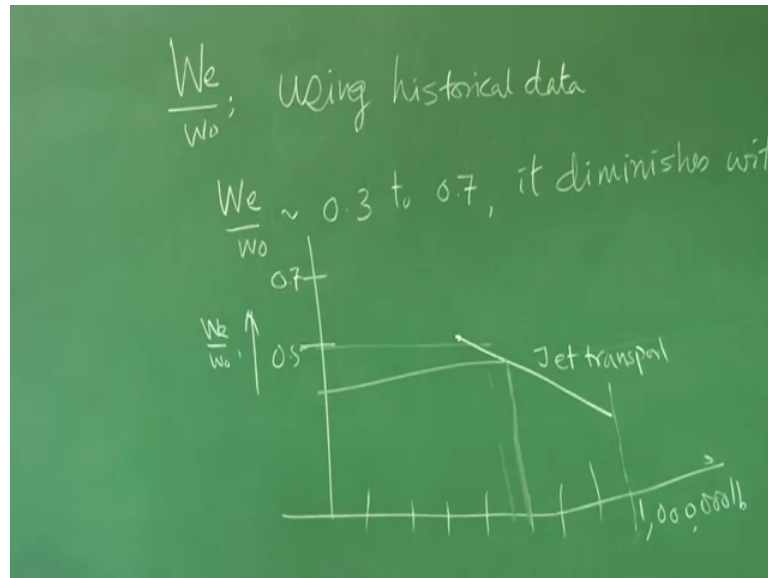 We/Wo; Using historical data
We/Wo ~ 0.3 to 0.7, it diminishes wit
0.7
We/Wo. 0.5
Jet transport
1,000,000lb